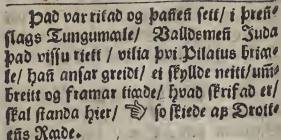 Þad var ritad og þañeñ sett/ i þreñ⸗
slags Tungumæle/ Valldsmeñ Juda
þad vissu riett / vilia þvi Pilatus brigæ⸗
le/ hañ ansar greidt/ ei skyllde neitt/ um⸗
breitt og framar tiæde/ hvad skrifad er/
skal standa hier/ ☞ so skiede aþ Drott⸗
eñs Ræde.